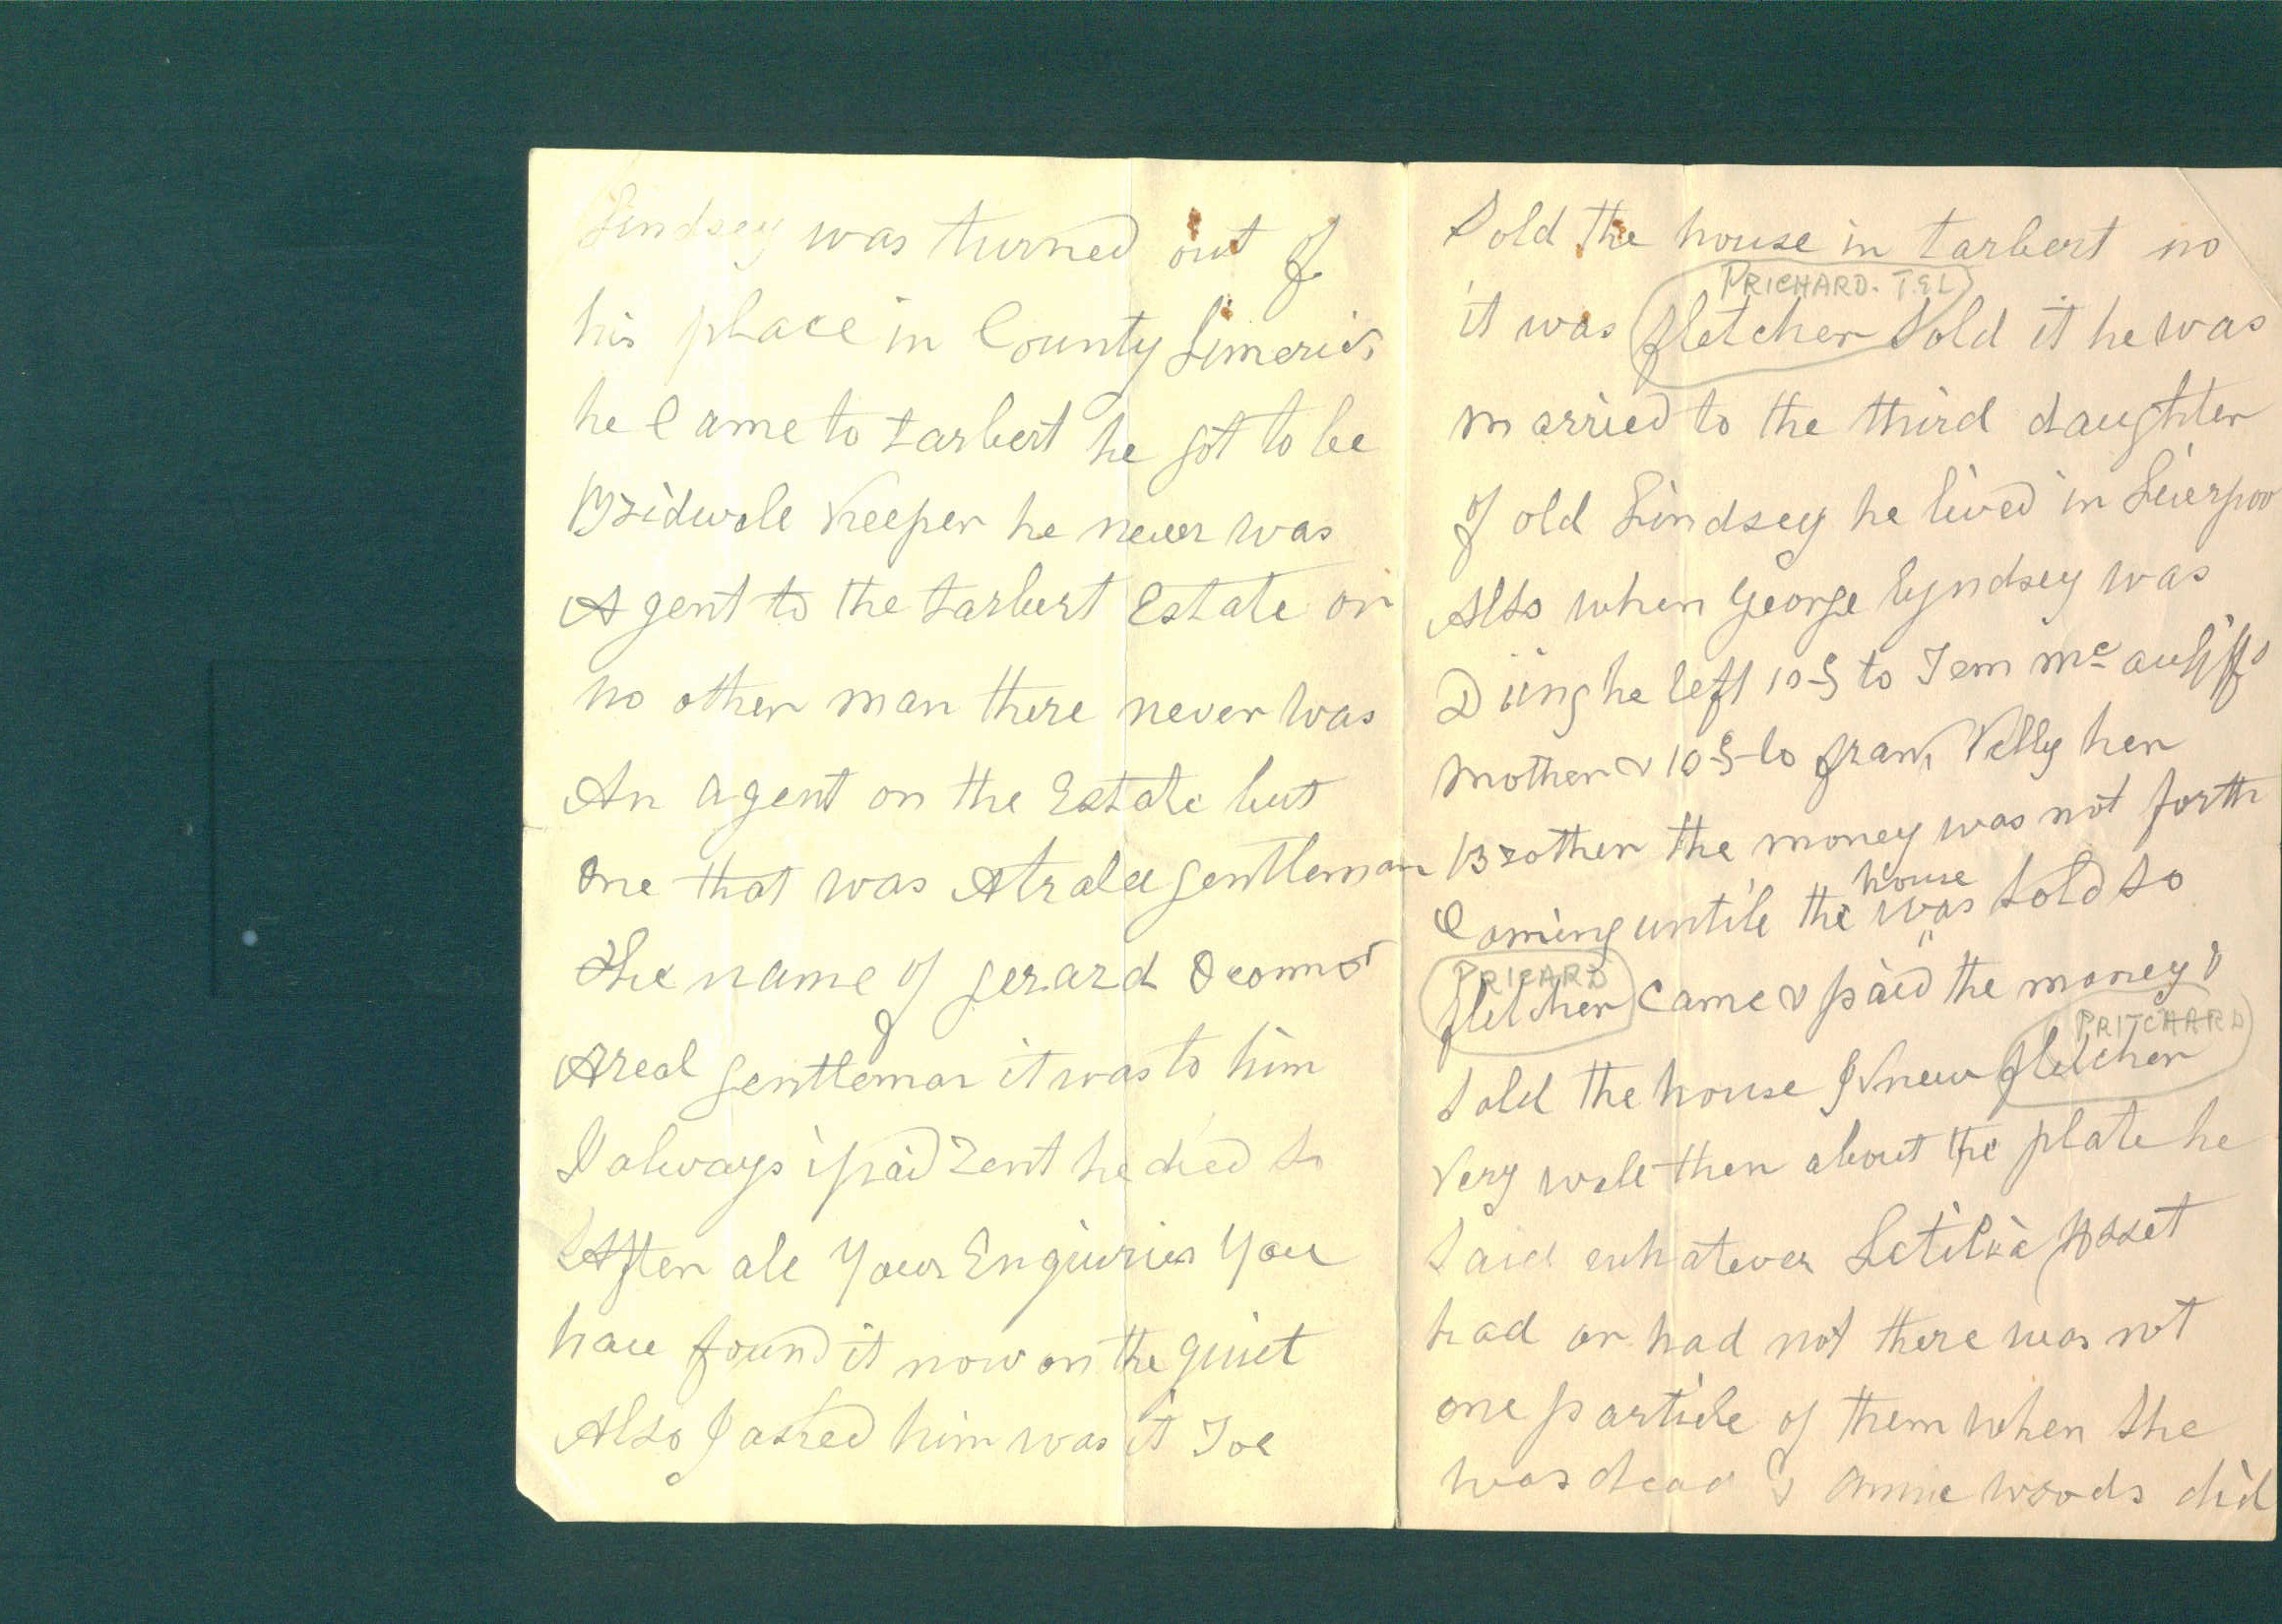 Lindsey was turned out of
his place in County Limerick
he Came to tarbert he got to be
Bridwele Keeper he never was
Agent to the tarbert Estate or
no other man there never was
An agent on the Estate but
One that was Atralee gentleman
the name of gerard Oconnor
Areal gentleman it was to him
I always ipaid rent he died so
After ale Your Enquiries You
have found it now on the quiet
Also I asked him was it Joe
Sold the house in tarbert no
PRICHARD. T.G.L
it was fletcher Sold it he was
married to the third daughter
of old Lindsey he lived in Liverpoo
Also when george Lyndsey was
Diing he left 10£ to Jem Mc auliffs
mother & 10£ to frank Kelly her
Brother the money was not forth
house
Coming untile the was sold so
PRICARD
fletcher Came & paid the money &
PRITCHARD
Sold the house I knew fletcher
Very wele then about the plate he
Said whatever Letitia
had or had not there was not
one particle of them when she
was dead & annie woods did